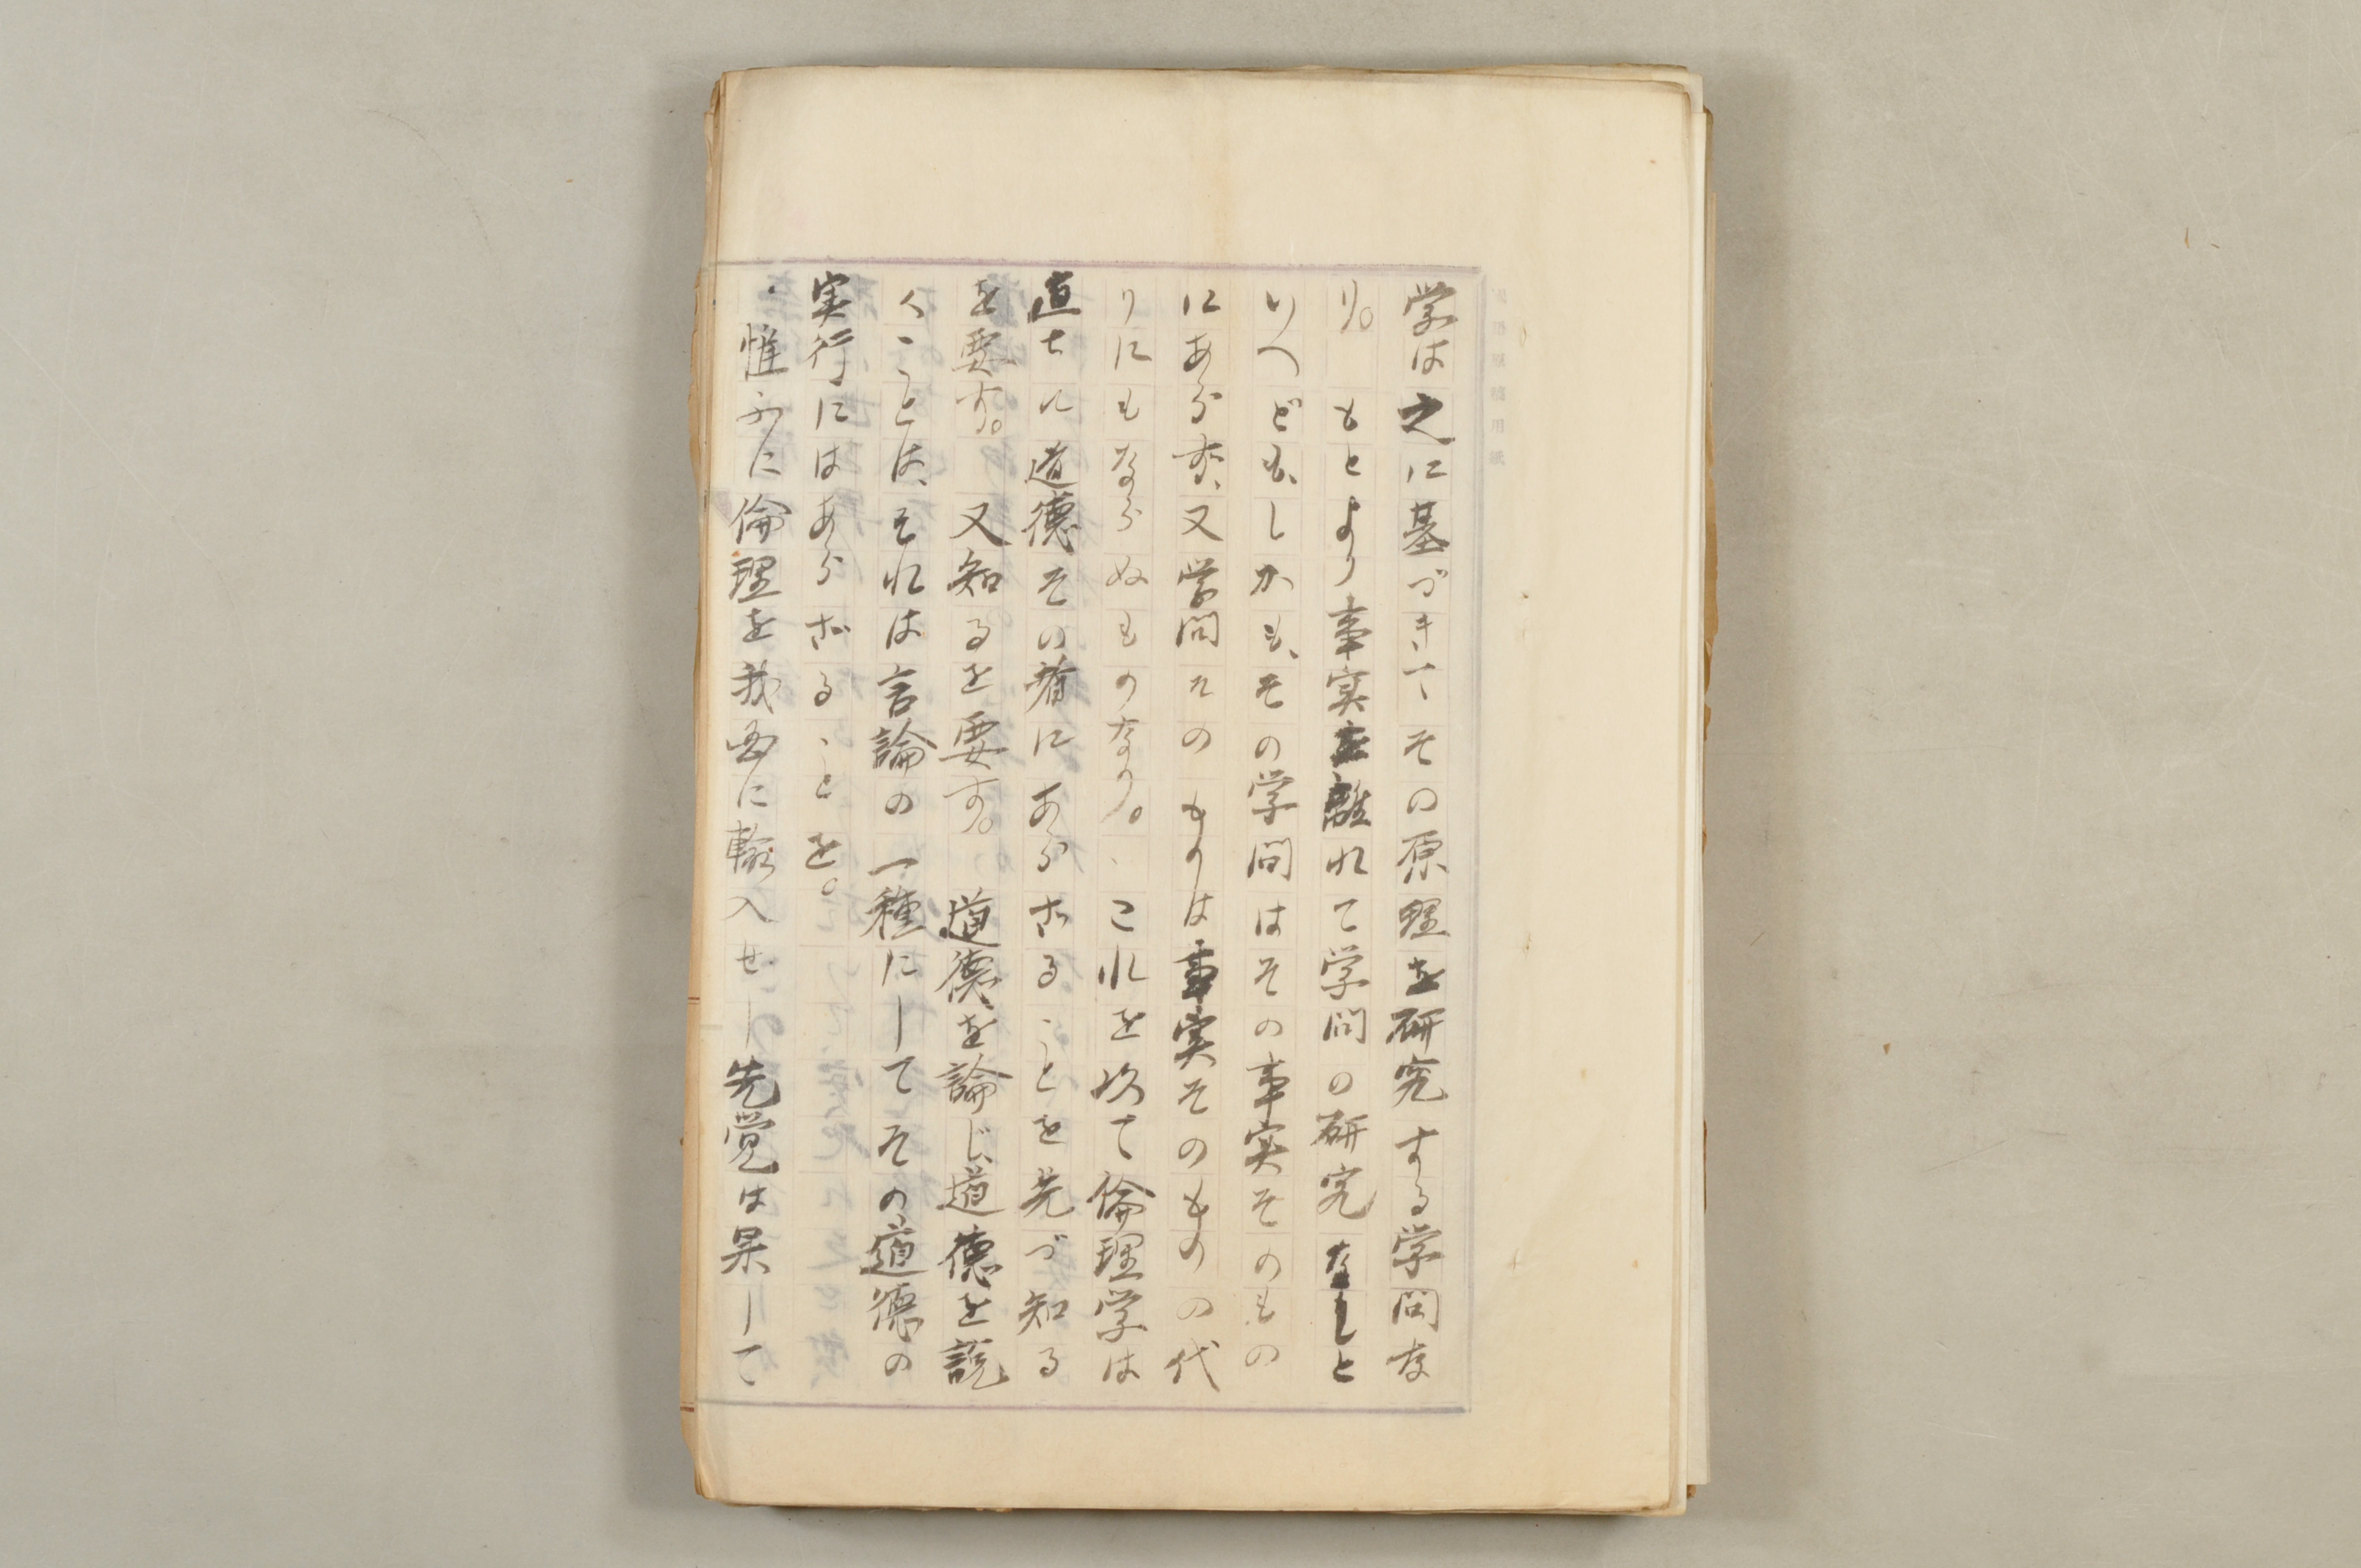 学は之に基づきてその原理を研究する学問な
り。もとより事実を離れて学問の研究なしと
いへども、しかも、その学問はその事実そのもの
にあらず、又学問そのものは事実そのものの代
りにもならぬものなり。これを以て倫理学は
直ちに道徳その者にあらざることを先づ知る
を要す。又知るを要す。道徳を論じ、道徳を説
くことは、それは言論の一種にしてその道徳の
実行にはあらざることを。
惟ふに倫理を我国に輸入せし先覚は果して